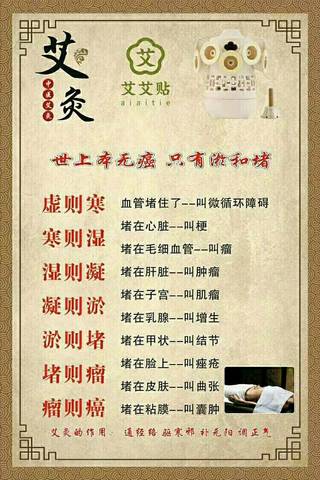 艾灸
中医艾灸
艾
艾艾贴
aiaitie
世上本无癌 只有淤和堵
虚则寒
寒则湿
湿则凝
凝则淤
淤则堵
堵则瘤
瘤则癌
血管堵住了--叫微循环障碍
堵在心脏--叫梗
堵在毛细血管--叫瘤
堵在肝脏--叫肿瘤
堵在子宫--叫肌瘤
堵在乳腺--叫增生
堵在甲状--叫结节
堵在脸上--叫痤疮
堵在皮肤--叫曲张
堵在粘膜--叫囊肿
艾灸的作用：通经络 驱寒邪 补元阳 调正气